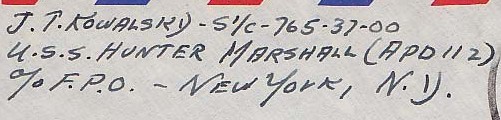 J.T. KOWALSKI - S1/C - 765-37-00
U.S.S. HUNTER MARSHALL (APD 112)
C/O F.P.O. - NEW YORK, N.Y.